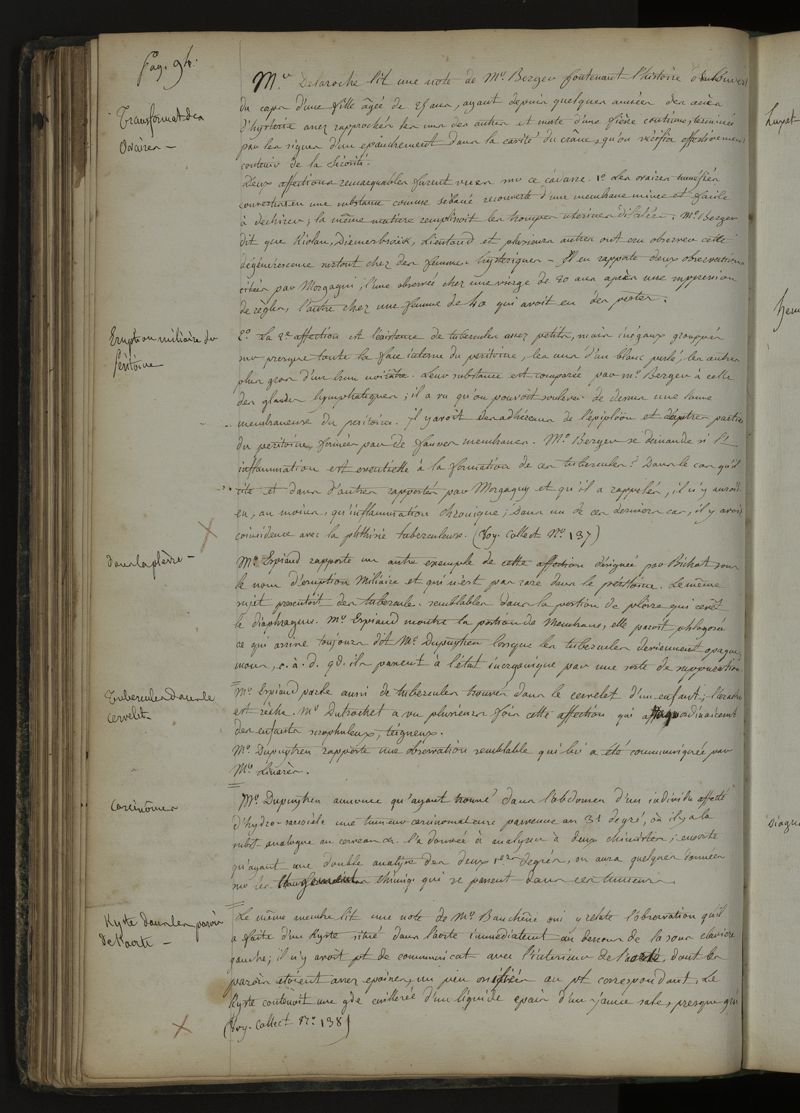 Pag. 94.
Mr. Delaroche lit une note de Mr. Berger contenant l'histoire
Transformat. des
Ovaires —
du corps d'une fille âgée de 25 ans, ayant depuis quelques années des accès
d'hystérie assez rapprochés les uns des autres et morte d'une fièvre continue, terminée
par les signes d'un épanchement dans la cavité du crâne, qu'on vérifia effectivement
contenir de la sérosité.
Deux affections remarquables furent vues sur ce cadavre. 1o. les ovaires tuméfiés
une substance comme sébacé recouverte d'une membrane mince et facile
à déchirer; la même matière remplissoit les trompes utérines dilatées; Mr. Berger
dit que Riolan, Diemerbroeck, Lieutaud et plusieurs autres ont eu observer cette
dégénérescence surtout chez des femmes hystériques — Il en rapporte deux observations
citées par Morgagni, l'une observée chez une vierge de 20 ans après une suppression
de règles, l'autre chez une femme de 40 qui avoit eu des pertes.
Eruption miliaire du
Péritoine
2o. La 2e. affection est l'existence de tubercules assez petits, mais inégaux grouppés
sur presque toute la face interne du péritoine, les uns d'un blanc perlé, les autres
plus gros d'un brun noirâtre. Leur substance est comparée par Mr. Berger à celle
des glandes lymphatiques; il a vu qu'on pouvoit soulever de dessus une lame
membraneuse du péritoine. Il y avoit des adhérences de l'épiploon et d'autres parties
du péritoine, formées par de fausses membranes. Mr. Berger se demande si l'
inflammation est essentielle à la formation de ces tubercules? Dans le cas qu'il
cite et dans d'autres rapportés par Morgagny et qu'il a rappelés, il n'y auroit
eu, au moins, qu'inflammation chronique; Dans un de ces derniers cas, il y avoit
coincidence avec la phthisie tuberculeuse. (Voy. Collect No. 137)
dans la plèvre —
Mr. Espiaud rapporte un autre exemple de cette affection désignée par Bichat sous
le nom d'éruption miliaire et qui n'est pas rare dans le péritoine. Le même
sujet présentoit des tubercules semblables dans la portion de plèvre qui revêt
le diaphragme. Mr. Espiaud montre la portion de membrane, elle paroit phlogosée
ce qui arrive toujours dit Mr. Dupuytren lorsque les tubercules deviennent opaques,
mous, c. à. d. qd. ils passent à l'état par une sorte de suppuration
Tubercules dans le
cervelet
Mr. Espiaud parle aussi de tubercules trouvés dans le cervelet d'un enfant;
est sèche. Mr. Dutrochet a vu plusieurs fois cette affection qui attaque ordinairement
des enfants scrophuleux, teigneux.
Mr. Dupuytren rapporte une observation semblable qui lui a été communiquée par
Mr.
Carcinômes
Mr. Dupuytren annonce qu'ayant trouvé dans l'abdomen d'un individu affecté
une tumeur carcinomateuse parvenue au 3e. degré, où il y a la
subst. analogue au cerveau &c. l'a donnée à analyser à deux chimistes; ensorte
qu'ayant une double analyse des deux 1ers. degrés, on aura quelques données
sur les changements chimiq. qui se passent dans ces tumeurs.
Kyste dans les parois
de l'aorte —
Le même membre lit une note de Mr. Bauchêne où y relate l'observation qu'il
a faite d'un Kyste situé dans l'aorte immédiatement au dessous de la sous clavière
gauche; il n'y avoit pt. de communicat. avec l'intérieur de l'aorte, dont les
parois étoient assez épaisses, un peu ossifiées au pt. correspondant. Le
Kyste contenoit une gde. cuillerée d'un liquide épais d'un jaune sale, presque gris
(Voy. Collect No. 138)